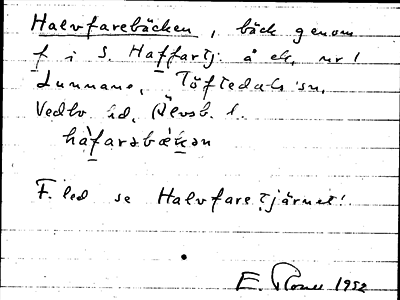 Halvfarebäcken, bäck genom
f i S. Haffartj. å ek. nr 1
Lunnane, Töftedals sn,
Vedbo hd, Älvsb. l.
hàfarabækən
F. led se Halvfaretjärnet!
E. 1952